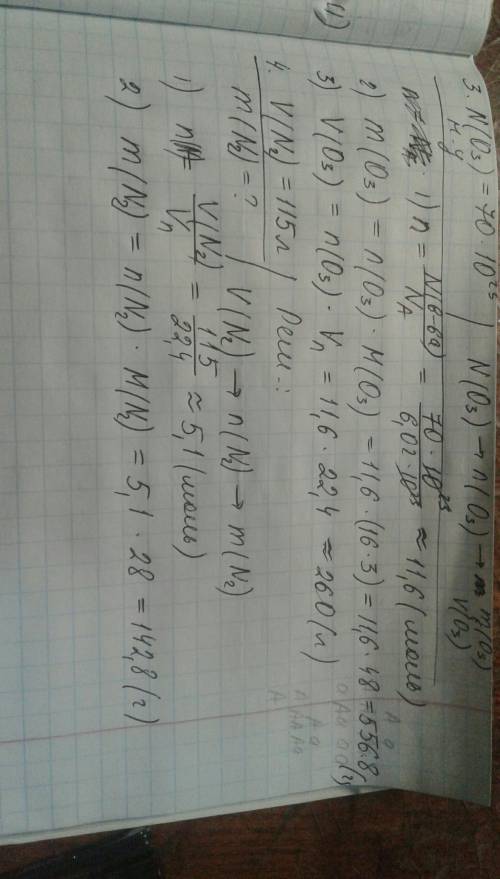 3. N(O₃) = 70 · 10²³ | N(O₃) → n(O₃) → m(O₃)
V(O₃)
1) n = N(в-ва) / Nₐ = 70 · 10²³ / 6,02 · 10²³ ≈ 11,6 (моль)
2) m(O₃) = n(O₃) · M(O₃) = 11,6 · (16 · 3) = 11,6 · 48 = 556.8 (г)
3) V(O₃) = n(O₃) · Vₙ = 11,6 · 22,4 ≈ 260 (л)
4. V(N₂) = 115 л | Реш.:
m(N₂) = ? | V(N₂) → n(N₂) → m(N₂)
1) n = V(N₂) / Vₙ = 115 / 22,4 ≈ 5,1 (моль)
2) m(N₂) = n(N₂) · M(N₂) = 5,1 · 28 = 142,8 (г)